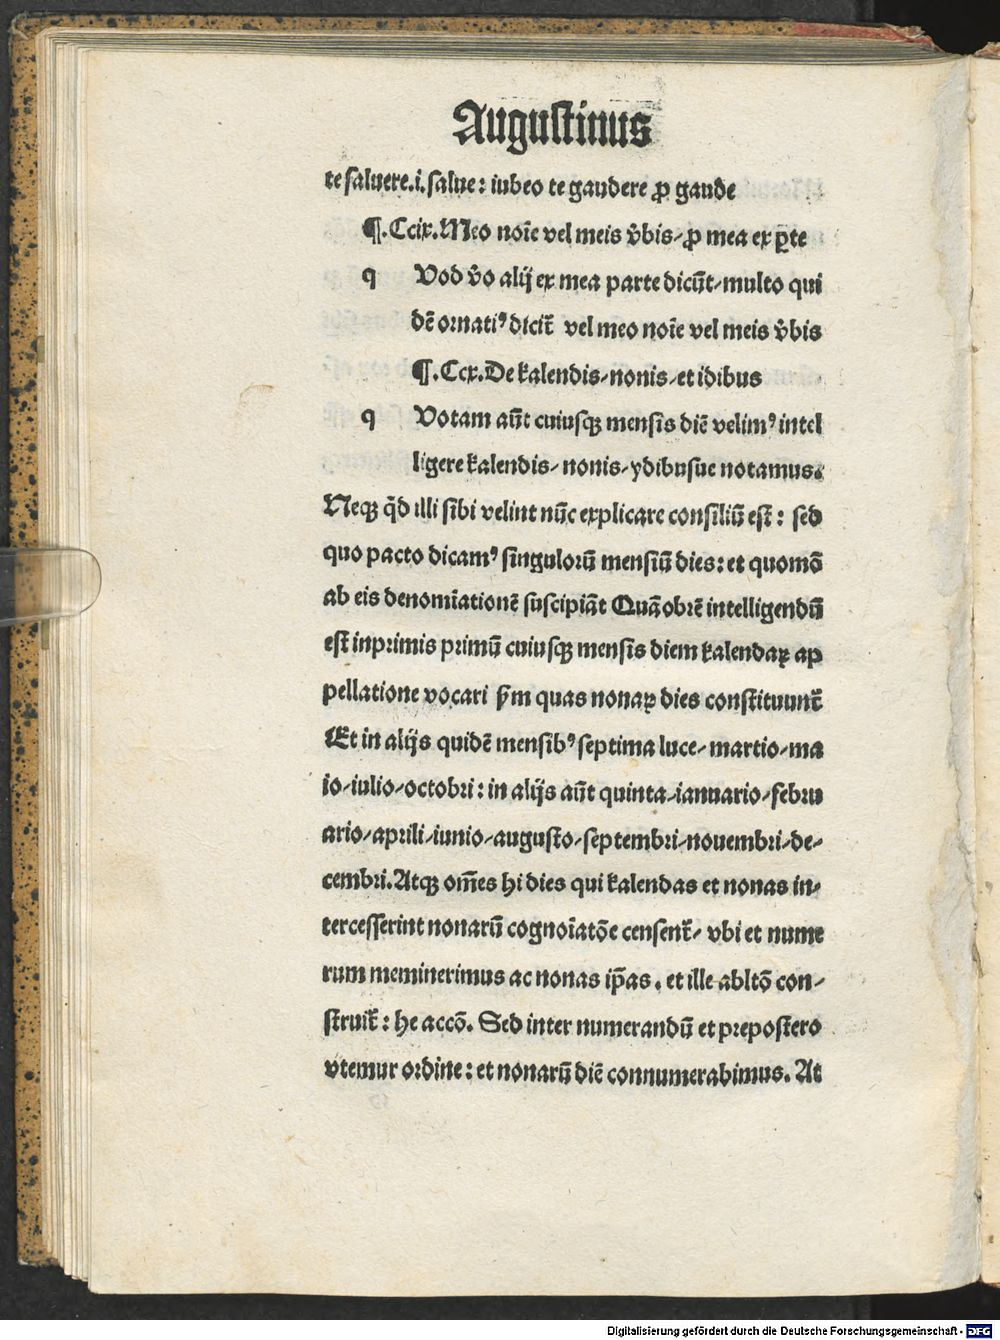 Augustinus
te saluere.i.salue: iubeo te gaudere ꝓ gaude
¶.Ccix.Meo noīe vel meis v̄bis-ꝓ mea ex ꝑte
q Vod v̄o alij ex mea parte dicūt/multo qui
dē ornatiꝰ dicit᷑ vel meo noīe vel meis v̄bis
¶.Ccx.De kalendis/nonis/et idibus
q Votam aūt cuiusqꝫ mensis diē velimꝰ intel
ligere kalendis/ nonis/ydibusue notamus.
Neqꝫ q̄d illi sibi velint nūc explicare consiliū est: sed
quo pacto dicamꝰ singulorū mensiū dies: et quomō
ab eis denomīationē suscipiāt Quāobrē intelligendū
est inprimis primū cuiusqꝫ mensis diem kalendaꝝ ap
pellatione vocari ẜm quas nonaꝝ dies constituunt᷑
Et in alijs quidē mensibꝰ septima luce/ martio/ma
io/iulio/octobri: in alijs aūt quinta/ianuario/febru
ario/aprili/iunio/augusto/septembri/nouembri/de/
cembri.Atqꝫ om̄es hi dies qui kalendas et nonas in/
tercesserint nonarū cognoīatōe censent᷑/ vbi et nume
rum meminerimus ac nonas ip̄as. et ille abltō con/
struit᷑: he accō. Sed inter numerandū et prepostero
vtemur ordine: et nonarū diē connumerabimus. At
Digitalisierung gefördert durch die Deutsche Forschungsgemeinschaft - DFG